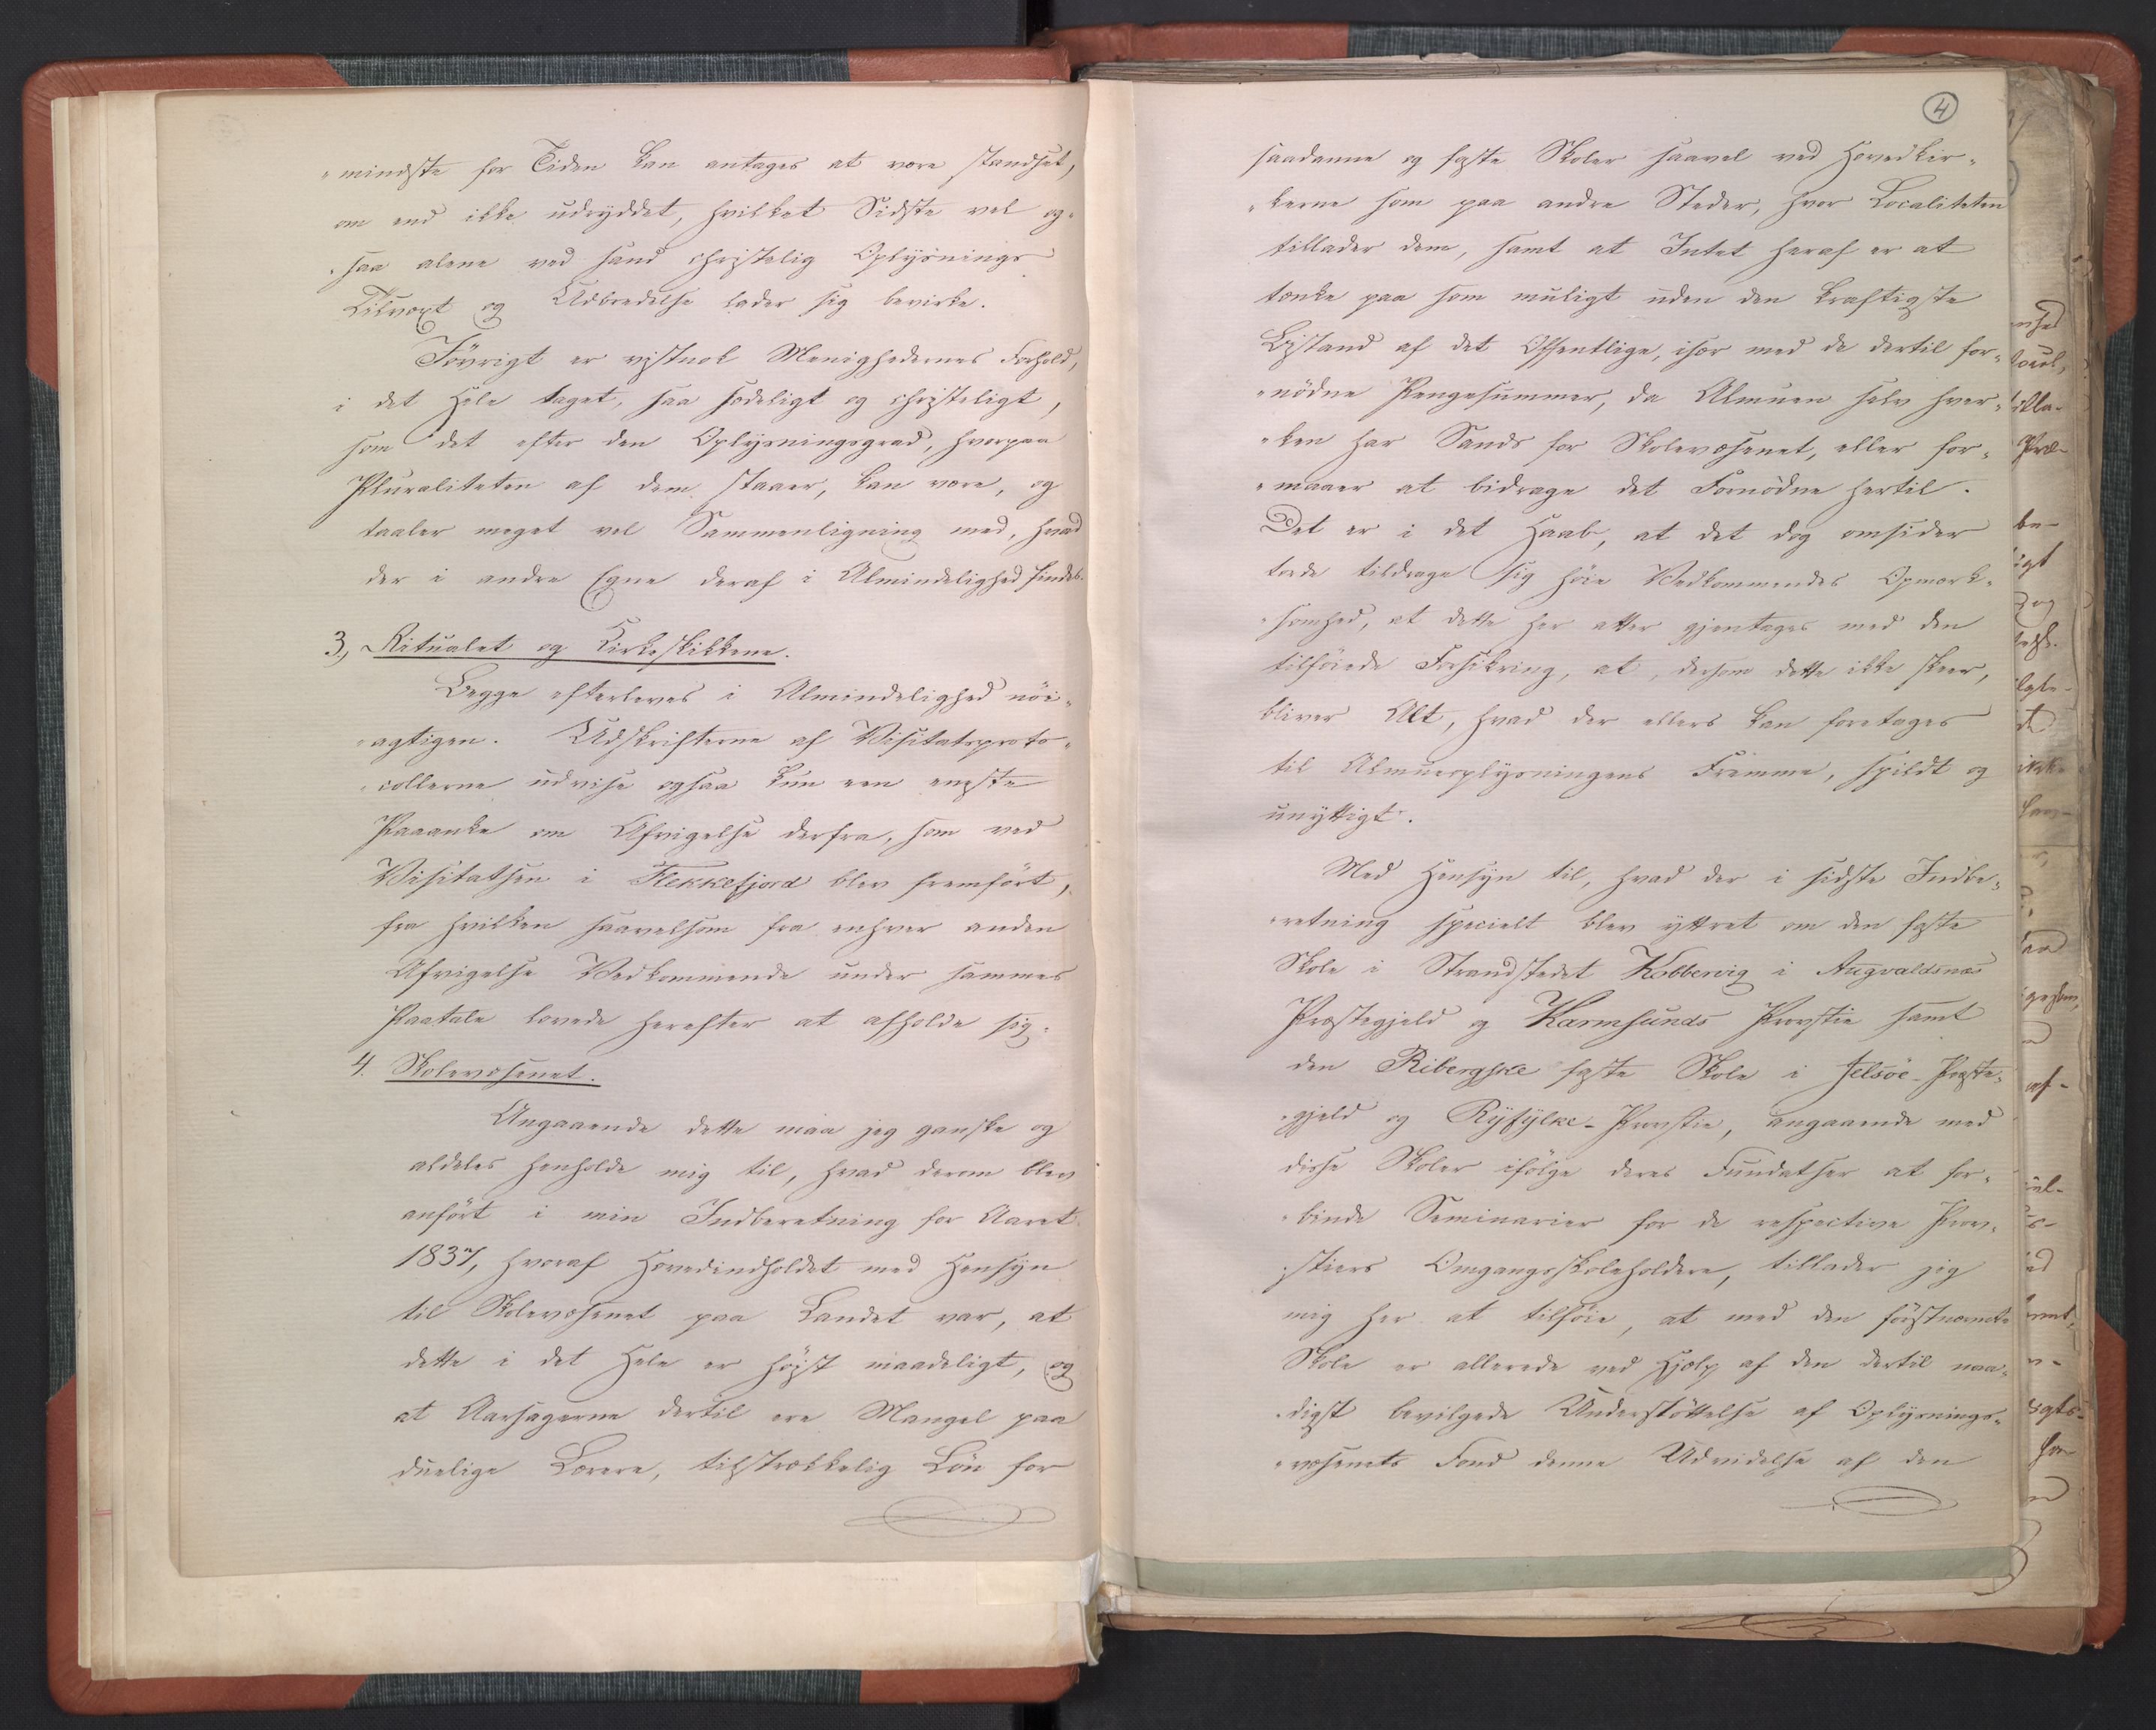 mindste for Tiden kan antages at være standset,
om end ikke udryddet, hvilket Sidste vel og-
saa alene ved sand christelig Oplysnings
Tilvæxt og Udbredelse lader sig bevirke.
Iøvrigt er vistnok Menighedernes Forhold,
i det Hele taget, saa sædeligt og christeligt,
som det efter den Oplysningsgrad, hvorpaa
Pluraliteten af dem staaer, kan være, og
taaler meget vel Sammenligning med, hvad
der i andre Egne deraf i Almindelighed findes.
3, Ritualet og Kirkeskikkene.
Begge efterleves i Almindelighed nöi-
agtigen. Udskrifterne af Visitatsproto-
collerne udvise ogsaa kun een eneste
Paaanke om Afvigelse derfra, som ved
Visitatsen i Flekkefjord blev fremfört,
fra hvilken saavelsom fra enhver anden
Afvigelse Vedkommende under sammes
Paatale lovede herefter at afholde sig.
4. Skolevæsenet.
Angaaende dette maa jeg ganske og
aldeles henholde mig til, hvad derom blev
anfört i min Indberetning for Aaret
1837, hvoraf Hovedindholdet med Hensyn
til Skolevæsenet paa Landet var, at
dette i det Hele er höist maadeligt, og
at Aarsagerne dertil ere Mangel paa
duelige Lærere, tilstrækkelig Lön for
4
saadanne og faste Skoler saavel ved Hovedkir-
kerne som paa andre Steder, hvor Localiteten
tillader dem, samt at Intet heraf er at
tænke paa som muligt uden den kraftigste
Bistand af det Offentlige, især med de dertil for-
nödne Pengesummer, da Almuen selv hver-
ken har Sands for Skolevæsenet, eller for-
maaer at bidrage det Fornödne hertil.
Det er i det Haab, at det dog omsider
torde tildrage sig höie Vedkommendes Opmærk-
somhed, at dette her atter gjentages med den
tilföiede Forsikring, at, dersom dette ikke skeer,
bliver Alt, hvad der ellers kan foretages
til Almueoplysningens Fremme, spildt og
unyttigt.
Med Hensyn til, hvad der i sidste Indbe-
retning specielt blev yttret om den faste
Skole i Strandstedet Kobbervig i Augvaldsnæs
Præstegjeld og Karmsunds Provstie samt
den Ribergske faste Skole i Jelsöe-Præste-
gjeld og Ryfylke-Provstie, angaaende med
disse Skoler ifölge deres Fundatser at for-
binde Seminarier for de respective Prov-
stiers Omgangsskoleholdere, tillader jeg
mig her at tilföie, at med den förstnævnte
Skole er allerede ved Hjelp af den dertil naa-
digst bevilgede Understöttelse af Oplysnings-
væsenets Fond denne Udvidelse af den